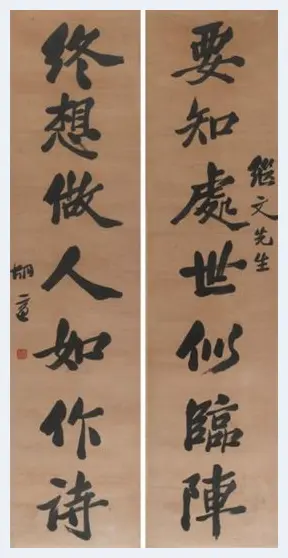 要知處世似臨陣
繼文先生
終想做人如作詩
胡